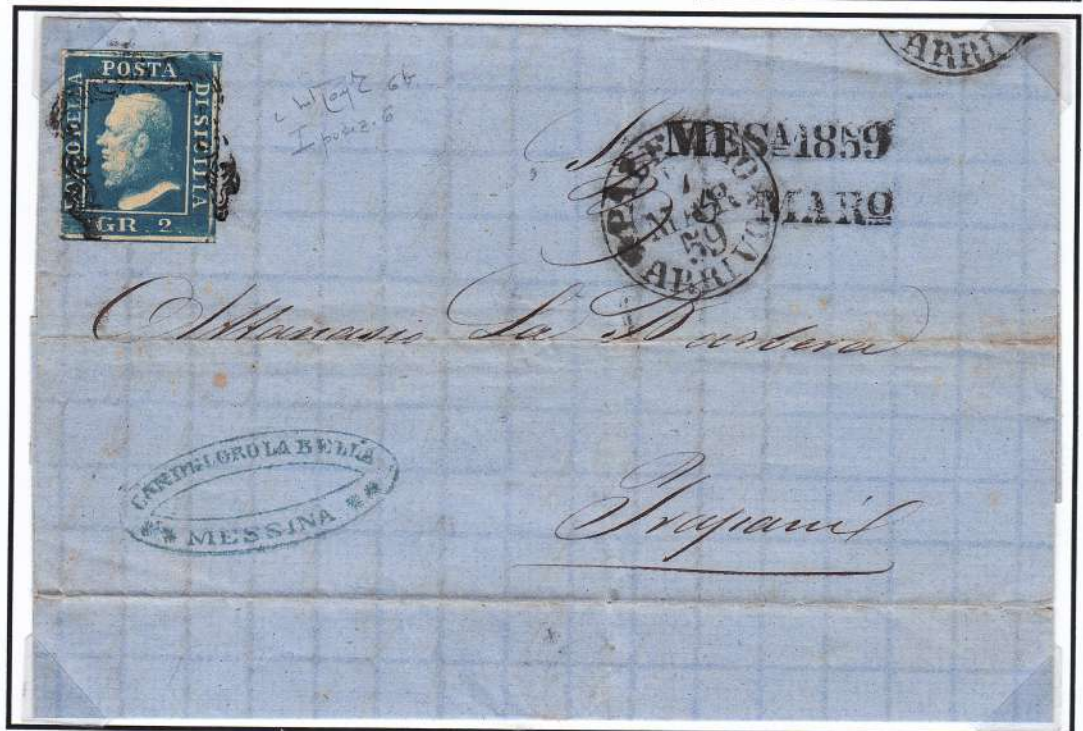 ARRI
BOLLO DELLA
POSTA
DI SICILIA
GR. 2
I posiz. 6
MESA 1859
MARO
PALERMO
MAR
59
ARRIVO
Attanasio La Barbera
CANDELORO LA BELLA
MESSINA
Trapani